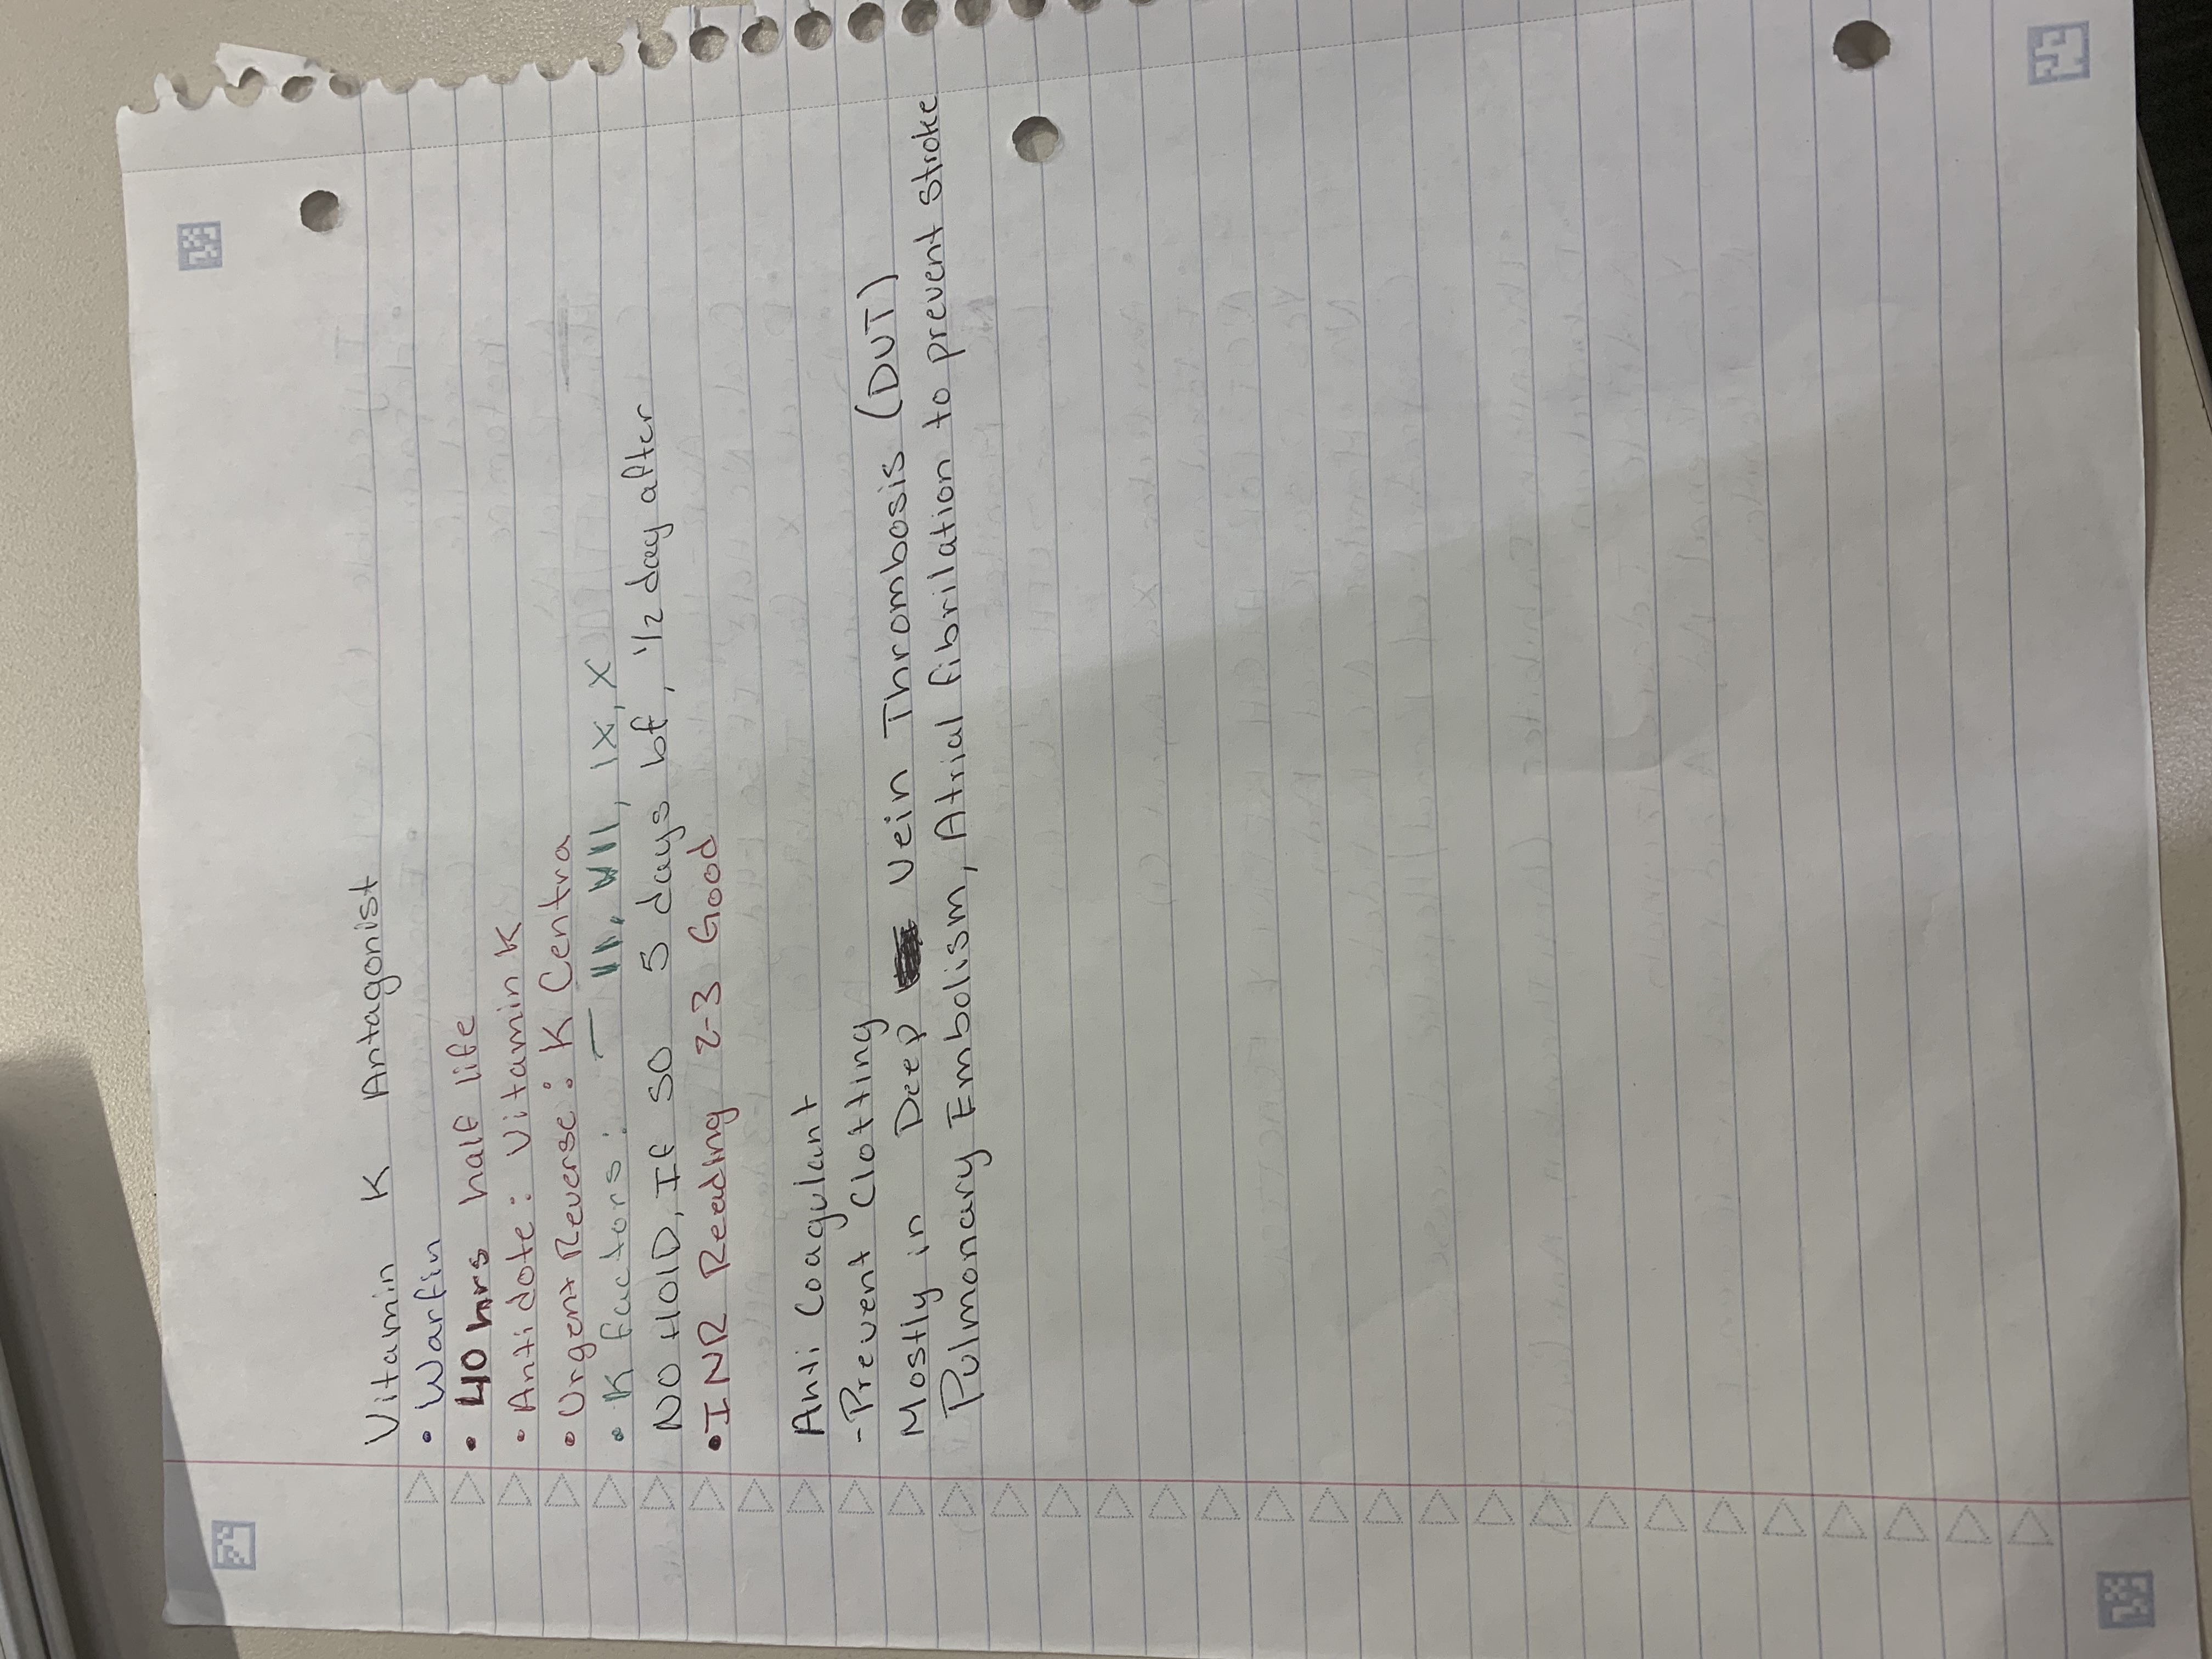 Vitamin K Antagonist
• Warfin
• 40 hrs half life
• Antidote: Vitamin K
• Urgent Reverse: K Centra
• K factors: - II, VII, IX, X
NO HOlD, If so 5 days bf, 1/2 day after
• INR Reading 2-3 Good
Anti Coagulant
- Prevent Clotting
Mostly in Deep Vein Thrombosis (DVT)
Pulmonary Embolism, Atrial fibrilation to prevent stroke